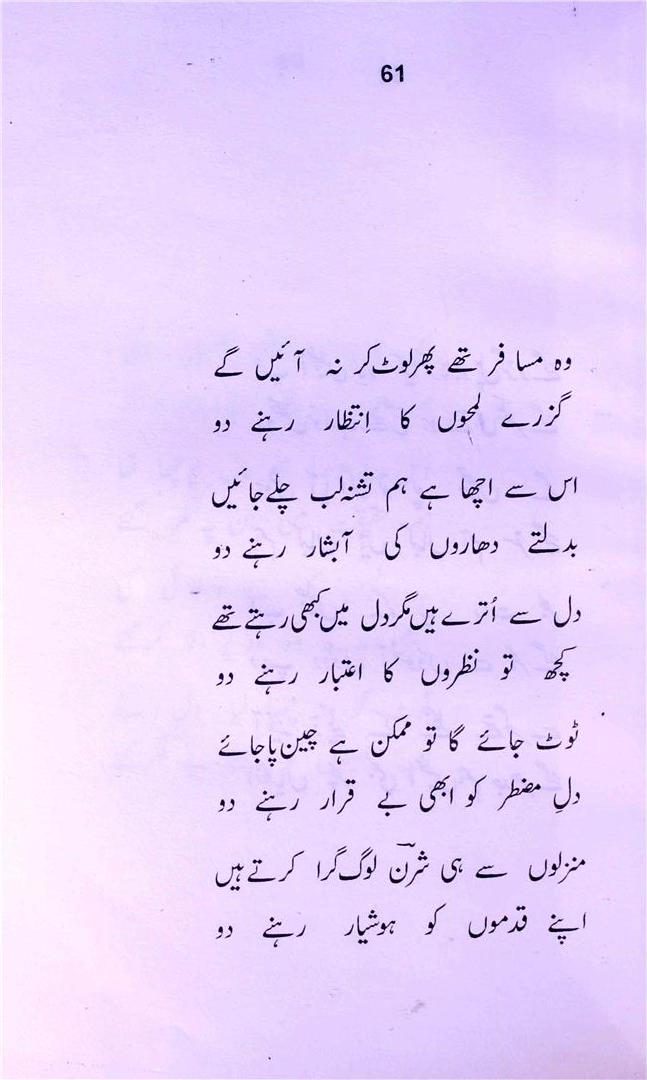 61
وہ مسافر تھے پھر لوٹ کر نہ آئیں گے
گزرے لمحوں کا اِنتظار رہنے دو
اس سے اچھا ہے ہم تشنہ لب چلے جائیں
بدلتے دھاروں کی آبشار رہنے دو
دل سے اُترے ہیں مگر دل میں کبھی رہتے تھے
کچھ تو نظروں کا اعتبار رہنے دو
ٹوٹ جائے گا تو ممکن ہے چین پا جائے
دلِ مضطر کو ابھی بے قرار رہنے دو
منزلوں سے ہی شرنؔ لوگ گرا کرتے ہیں
اپنے قدموں کو ہوشیار رہنے دو